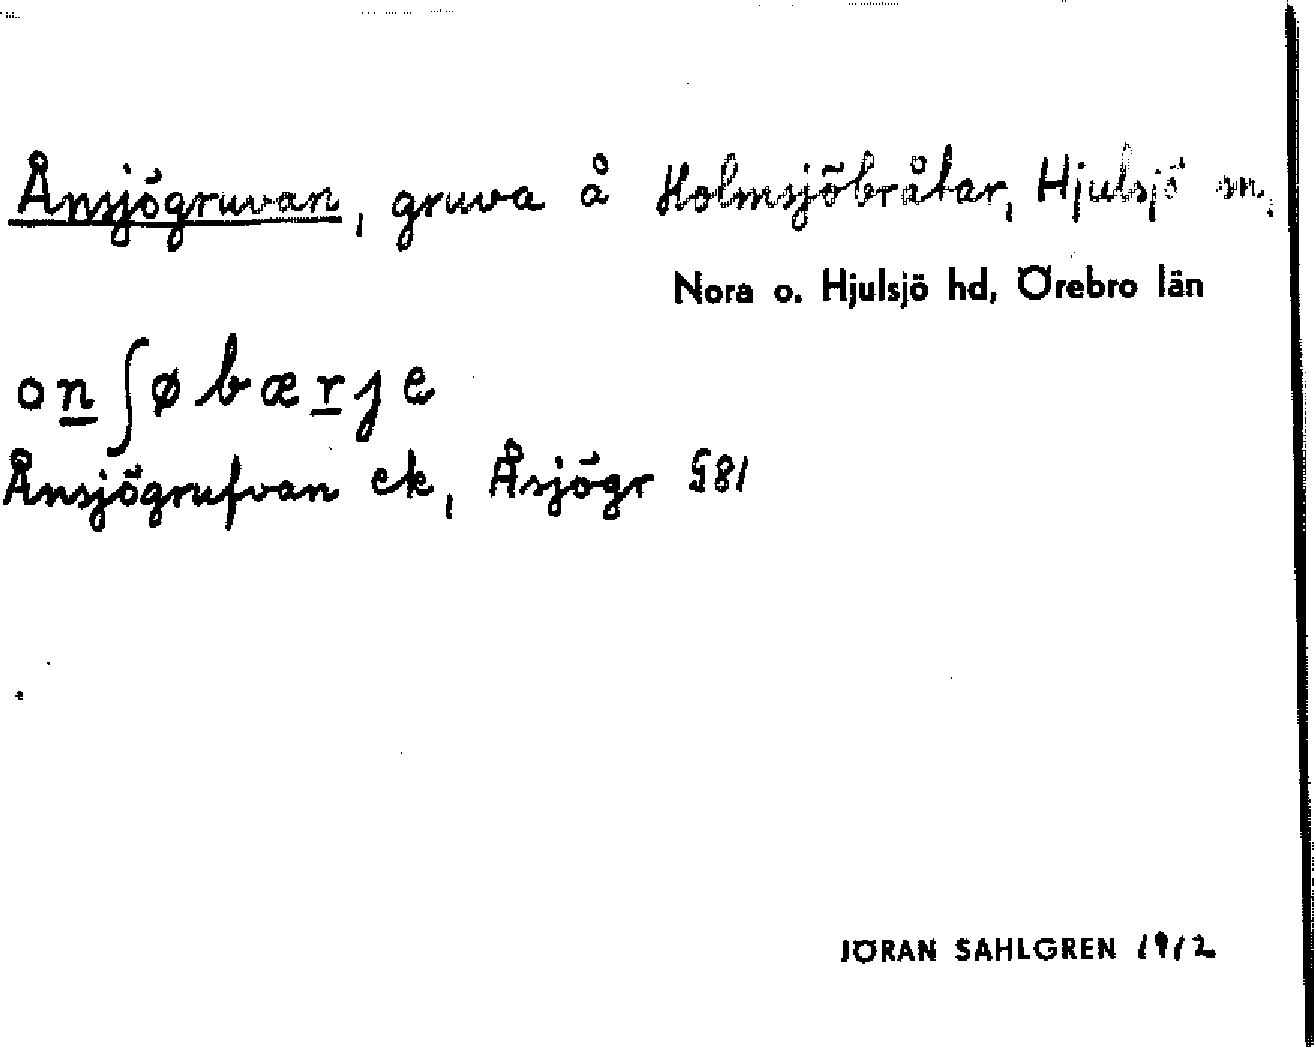 Ånsjögruvan, gruva å Holmsjöbråtar, Hjulsjö sn,
Nora o. Hjulsjö hd, Örebro län
on ʃøbærje
Ånsjögrufvan ek, Åsjögr G81
JÖRAN SAHLGREN 1912